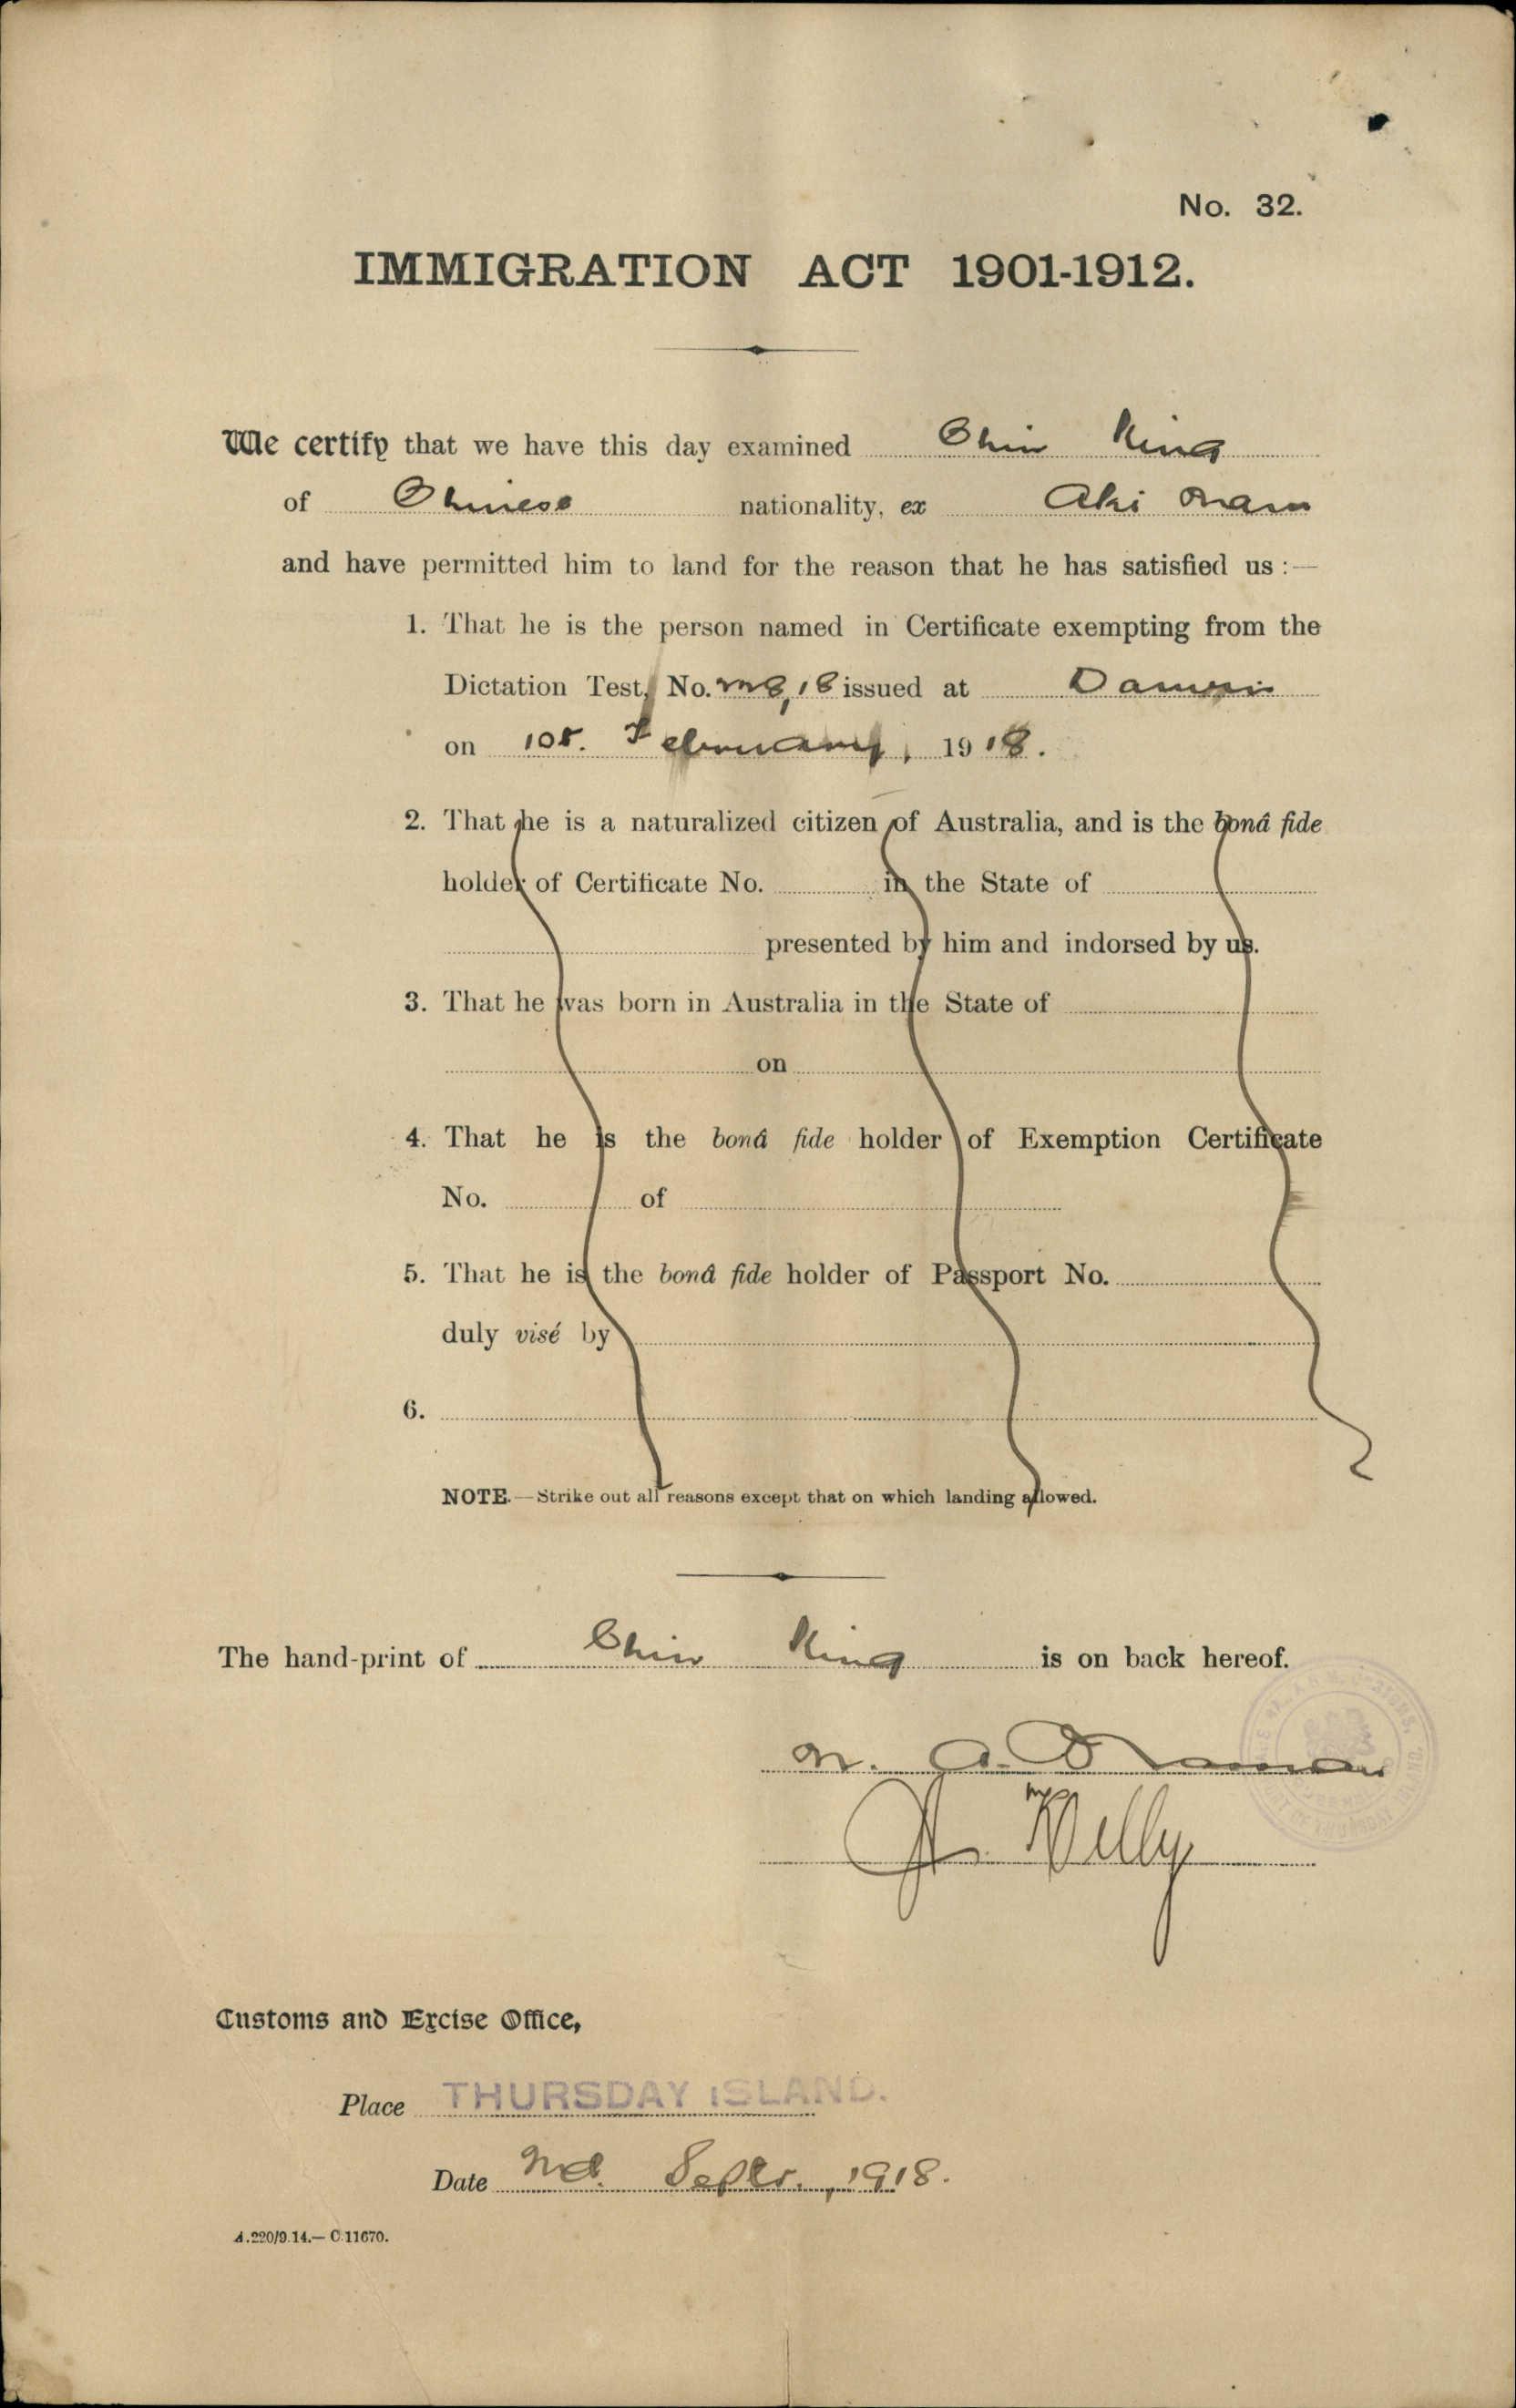 No. 32.
IMMIGRATION ACT 1901-1912.
We certify that we have this day examined Chin King
of Chinese nationality, ex Aki Maru
and have permitted him to land for the reason that he has satisfied us :—
1. That he is the person named in Certificate exempting from the
Dictation Test, No. issued at Darwin
on February, 1918.
2. That he is a naturalized citizen of Australia, and is the bonâ fide
holder of Certificate No. in the State of
presented by him and indorsed by us.
3. That he was born in Australia in the State of
on
4. That he is the bonâ fide holder of Exemption Certificate
No. of
5. That he is the bonâ fide holder of Passport No.
duly visé by
6.
NOTE.—Strike out all reasons except that on which landing allowed.
The hand-print of Chin King is on back hereof.
Customs and Excise Office,
Place THURSDAY ISLAND.
Date 2nd. Septr. 1918.
A.220/9.14.—C.11670.